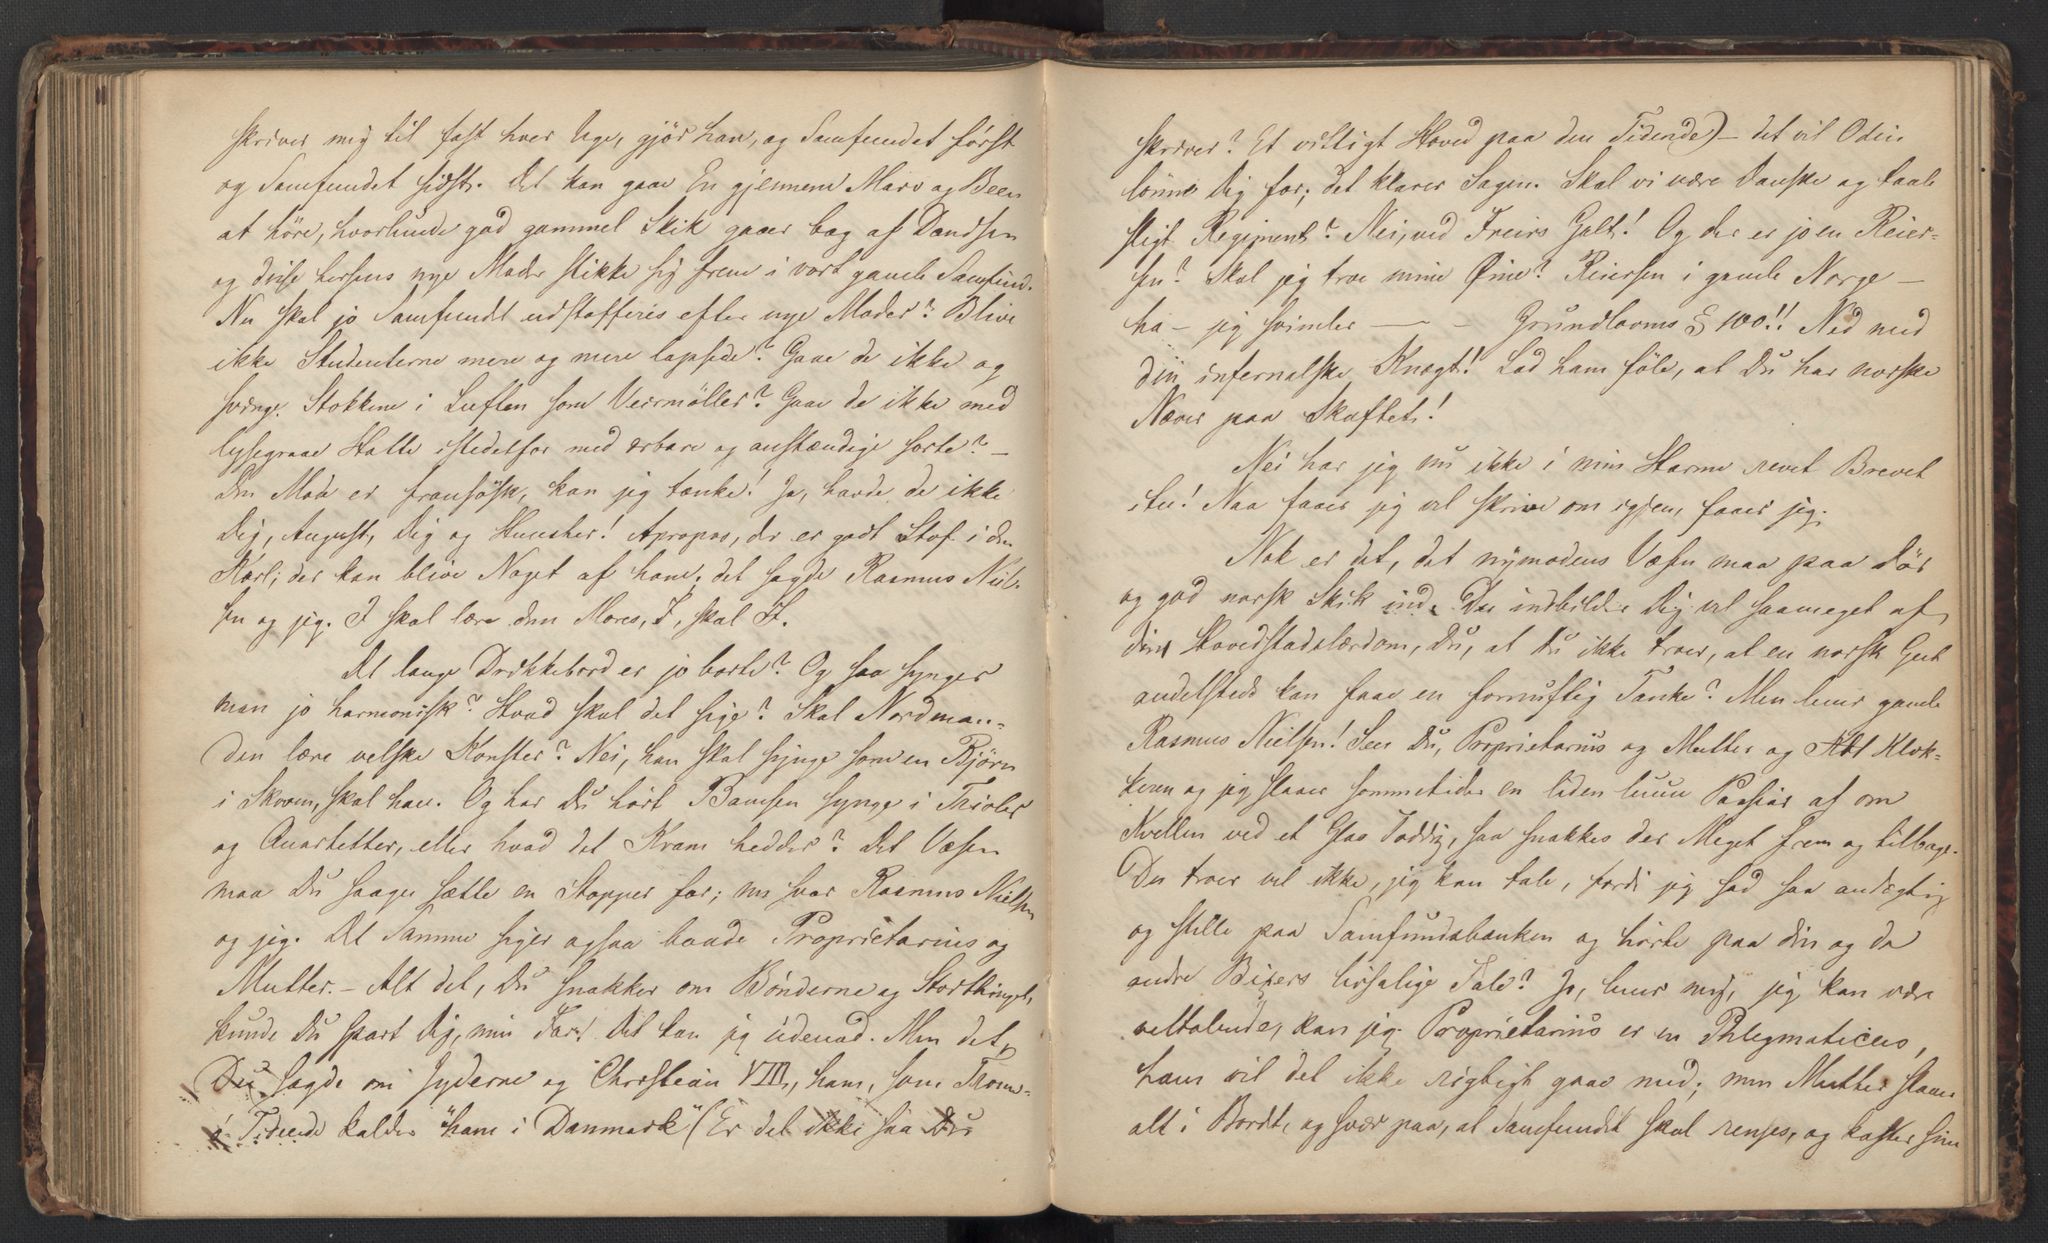 skriver mig til fast hver Uge, gjør han, og Samfundet først
og Samfundet sidst. Det kan gaae En gjennem Marv og Been
at høre, hvorlunde god gammel Skik gaaer bag af Dandsen
og disse hersens nye Moder stikke sig frem i vort gamle Samfund.
Nu skal jo Samfundet udstafferes efter nye Moder? Blive
ikke Studenterne mere og mere lapsede? Gaae de ikke og
svinge Stokkene i Luften som Veirmøller? Gaae de ikke med
lysegraae Hatte istedetfor med ærbare og anstændige sorte? –
den Mode er fransösk, kan jeg tænke! Ja, havde de ikke
Dig, August, Dig og Hunsker! Apropos, der er godt Stof i den
Karl; der kan blive Noget af ham; det sagde Rasmus Niel-
sen og jeg. I skal lære dem Mores, I, skal I.
Det lange Drikkebord er jo borte? Og saa synger
man jo harmonisk? Hvad skal det sige? Skal Nordman-
den lære velske Konster? Nei, han skal synge som en Bjørn
i Skoven, skal han. Og har Du hørt Bamsen synge i Trioler
og Quartetter, eller hvad det Kram hedder? Det Væsen
maa Du saagu sætte en Stopper for; nu svær Rasmus Nielsen
og jeg. Det Samme siger ogsaa baade Proprietarius og
Mutter. – Alt det, Du snakker om Bønderne og Storthinget,
kunde Du spart Dig, min Far! Det kan jeg udenad. Men det,
Du sagde om Jyderne og Christian VIII, ham, som Trom-
ø Tidende kalder "ham i Danmark" (Er det ikke saa Du
skriver? Et vittigt Hoved paa den Tidende) – det vil Odin
lønne Dig for; det klarer Sagen. Skal vi være Danske og taale
sligt Regiment? Nei, ved Freirs Galt! Og der er jo en Reier-
sen? Skal jeg troe mine Øine? Reiersen i gamle Norge –
ha – jeg svimler – – – Grundlovens § 100!! Ned med
din infernalske Knægt! Lad ham føle, at Du har norske
Næver paa Skaftet!
Nei har jeg nu ikke i min Harme revet Brevet
itu! Naa faaer jeg vel skrive om igjen, faaer jeg.
Nok er det, det nymodens Væsen maa paa Dør
og god norsk Skik ind. Du indbilder Dig vel saameget af
din Hovedstadslærdom, Du, at Du ikke troer, at en norsk Gut
andetsteds kan faae en fornuftig Tanke? Men luur gamle
Rasmus Nielsen! Seer Du, Proprietarius og Mutter og Abt Klok-
keren og jeg slaaer sommetider en liden luun Passiar af om
Kvellen ved et Glas Toddy, saa snakkes der Meget frem og tilbage.
Du troer vel ikke, jeg kan tale, fordi jeg sad saa andægtig
og stille paa Samfundsbænken og hørte paa din og de
andre Bixers lifsalige Tale? Jo, luur mig, jeg kan være
veltalende, kan jeg. Proprietarius er en Phlegmaticus,
ham vil det ikke rigtigt gaae med; men Mutter slaaer
alt i Bordet, og svær paa, at Samfundet skal renses, og kaster sine